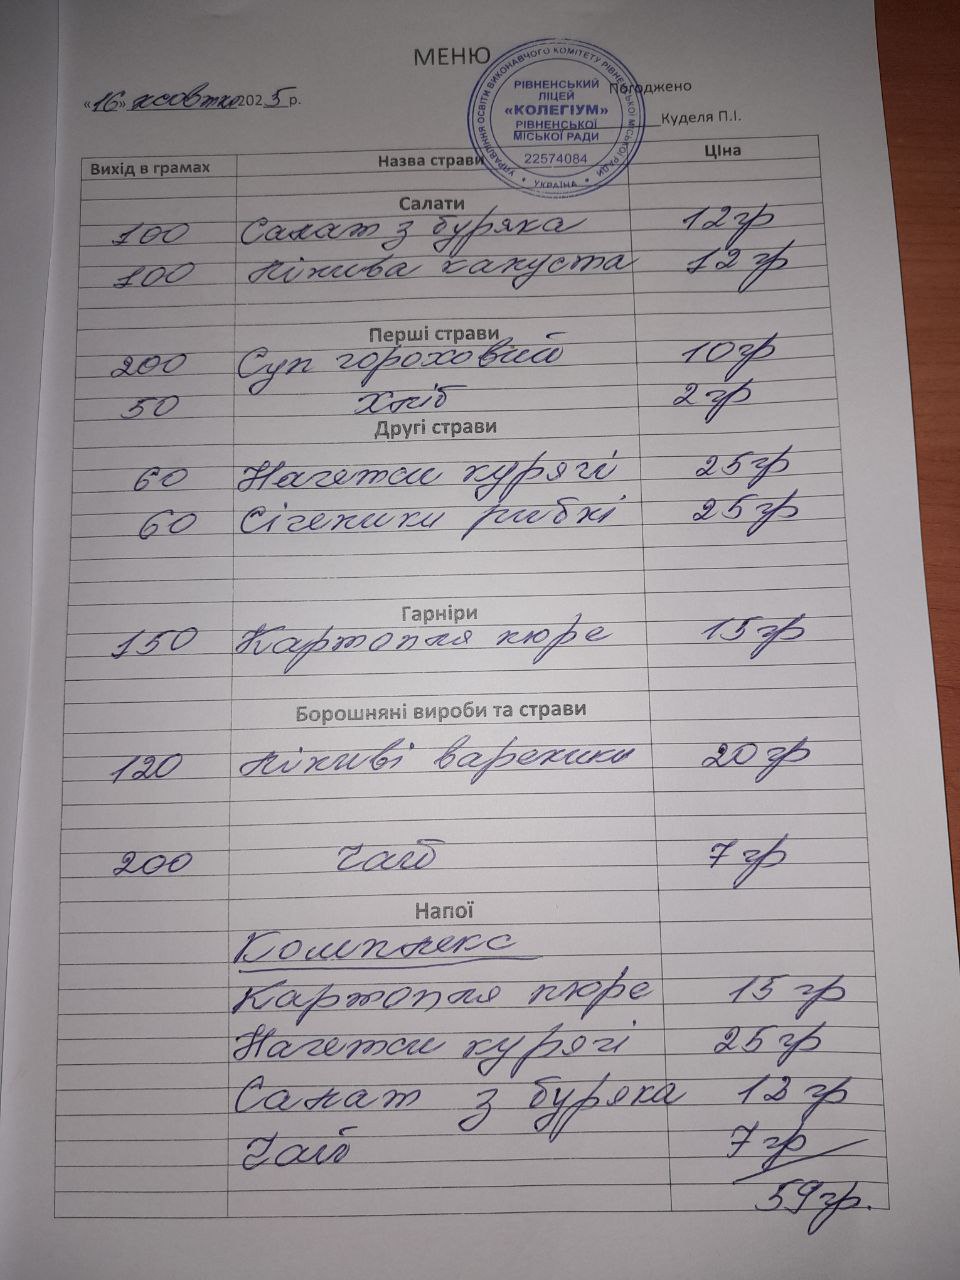 МЕНЮ
Погоджено
«16» жовтня 2025 р.
Куделя П.І.
УПРАВЛІННЯ ОСВІТИ ВИКОНАВЧОГО КОМІТЕТУ РІВНЕНСЬКОЇ МІСЬКОЇ РАДИ
РІВНЕНСЬКИЙ
ЛІЦЕЙ
«КОЛЕГІУМ»
РІВНЕНСЬКОЇ
МІСЬКОЇ РАДИ
22574084
* УКРАЇНА *
Вихід в грамах Назва страви Ціна
Салати
100 Салат з буряка 12гр
100 Пікнива капуста 12гр
Перші страви
200 Суп гороховий 10гр
50 Хліб 2гр
Другі страви
60 Нагетси курячі 25гр
60 Січеники рибні 25гр
Гарніри
150 Картопля пюре 15гр
Борошняні вироби та страви
120 Ліниві вареники 20гр
200 Чай 7гр
Напої
Комплекс
Картопля пюре 15гр
Нагетси курячі 25гр
Салат з буряка 12гр
Чай 7гр
59гр.